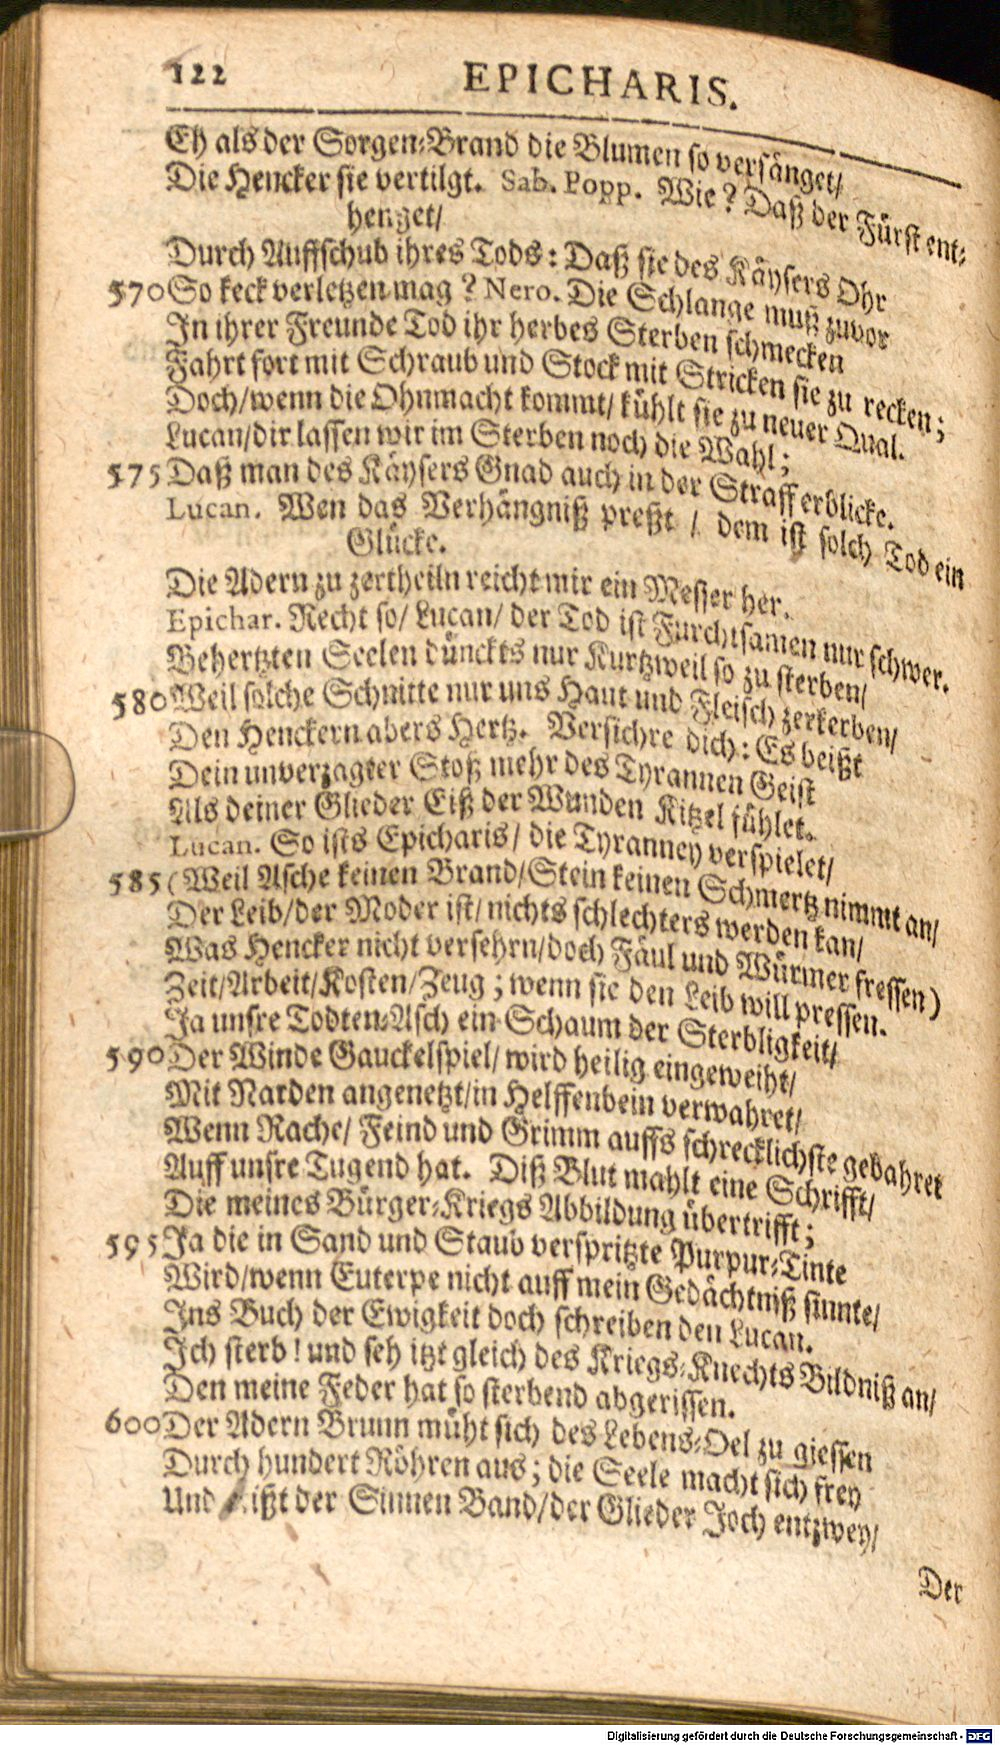 122 EPICHARIS.
Eh als der Sorgen-Brand die Blumen so versänget/
Die Hencker sie vertilgt. Sab. Popp. Wie? Daß der Fürst ent-
henget/
Durch Auffschub ihres Tods: Daß sie des Käysers Ohr
570 So keck verletzen mag? Nero. Die Schlange muß zuvor
In ihrer Freunde Tod ihr herbes Sterben schmecken
Fahrt fort mit Schraub und Stock mit Stricken sie zu recken;
Doch/wenn die Ohnmacht kommt/kühlt sie zu neuer Qual.
Lucan/dir lassen wir im Sterben noch die Wahl;
575 Daß man des Käysers Gnad auch in der Straff erblicke.
Lucan. Wen das Verhängniß preßt / dem ist solch Tod ein
Glücke.
Die Adern zu zertheiln reicht mir ein Messer her.
Epichar. Recht so/ Lucan/ der Tod ist Furchtsamen nur schwer.
Behertzten Seelen dünckts nur Kurtzweil so zu sterben/
580 Weil solche Schnitte nur uns Haut und Fleisch zerkerben/
Den Henckern abers Hertz. Versichre dich: Es beißt
Dein unverzagter Stoß mehr des Tyrannen Geist
Als deiner Glieder Eiß der Wunden Kitzel fühlet.
Lucan. So ists Epicharis/ die Tyranney verspielet/
585 (Weil Asche keinen Brand/Stein keinen Schmertz nimmt an/
Der Leib/der Moder ist/ nichts schlechters werden kan/
Was Hencker nicht versehrn/doch Fäul und Würmer fressen)
Zeit/Arbeit/Kosten/Zeug; wenn sie den Leib will pressen.
Ja unsre Todten-Asch ein Schaum der Sterbligkeit/
590 Der Winde Gauckelspiel/ wird heilig eingeweiht/
Mit Narden angenetzt/in Helffenbein verwahret/
Wenn Rache/ Feind und Grimm auffs schrecklichste gebahret
Auff unsre Tugend hat. Diß Blut mahlt eine Schrifft/
Die meines Bürger-Kriegs Abbildung übertrifft;
595 Ja die in Sand und Staub verspritzte Purpur-Tinte
Wird/wenn Euterpe nicht auff mein Gedächtniß sinnte/
Ins Buch der Ewigkeit doch schreiben den Lucan.
Ich sterb! und seh itzt gleich des Kriegs-Knechts Bildniß an/
Den meine Feder hat so sterbend abgerissen.
600 Der Adern Brunn müht sich des Lebens-Oel zu giessen
Durch hundert Röhren aus; die Seele macht sich frey
Und der Sinnen Band/der Glieder Joch entzwey/
Der
Digitalisierung gefördert durch die Deutsche Forschungsgemeinschaft - DFG